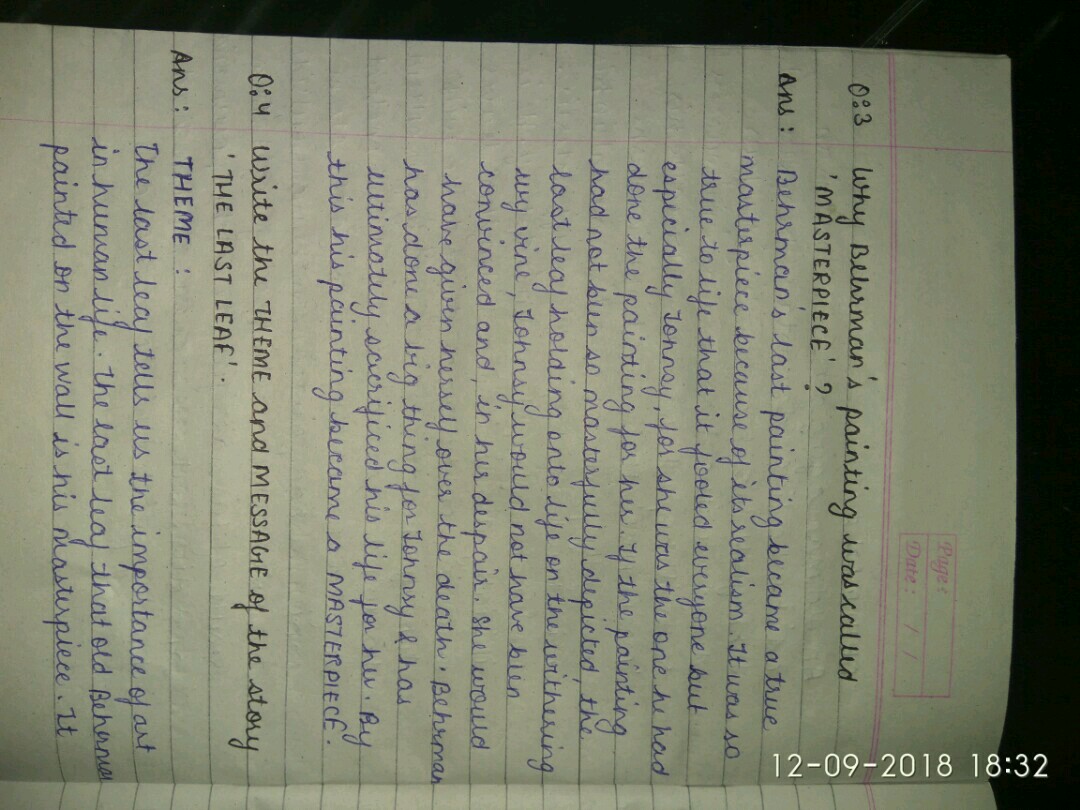 12-09-2018 18:32
Page:
Date: / /
Q:3 Why Behrman's painting was called
'MASTERPIECE' ?
Ans: Behrman's last painting became a true
masterpiece because of its realism. It was so
true to life that it fooled everyone but
especially Johnsy, for she was the one he had
done the painting for her. If the painting
had not been so masterfully depicted, the
last leaf holding onto life on the withering
ivy vine, Johnsy would not have been
convinced and, in her despair. She would
have given herself over the death. Behrman
has done a big thing for Johnsy & has
ultimately sacrificed his life for her. By
this his painting became a MASTERPIECE.
Q:4 Write the THEME and MESSAGE of the story
'THE LAST LEAF'.
Ans: THEME :
The last leaf tells us the importance of art
in human life. The last leaf that old Beherman
painted on the wall is his masterpiece. It